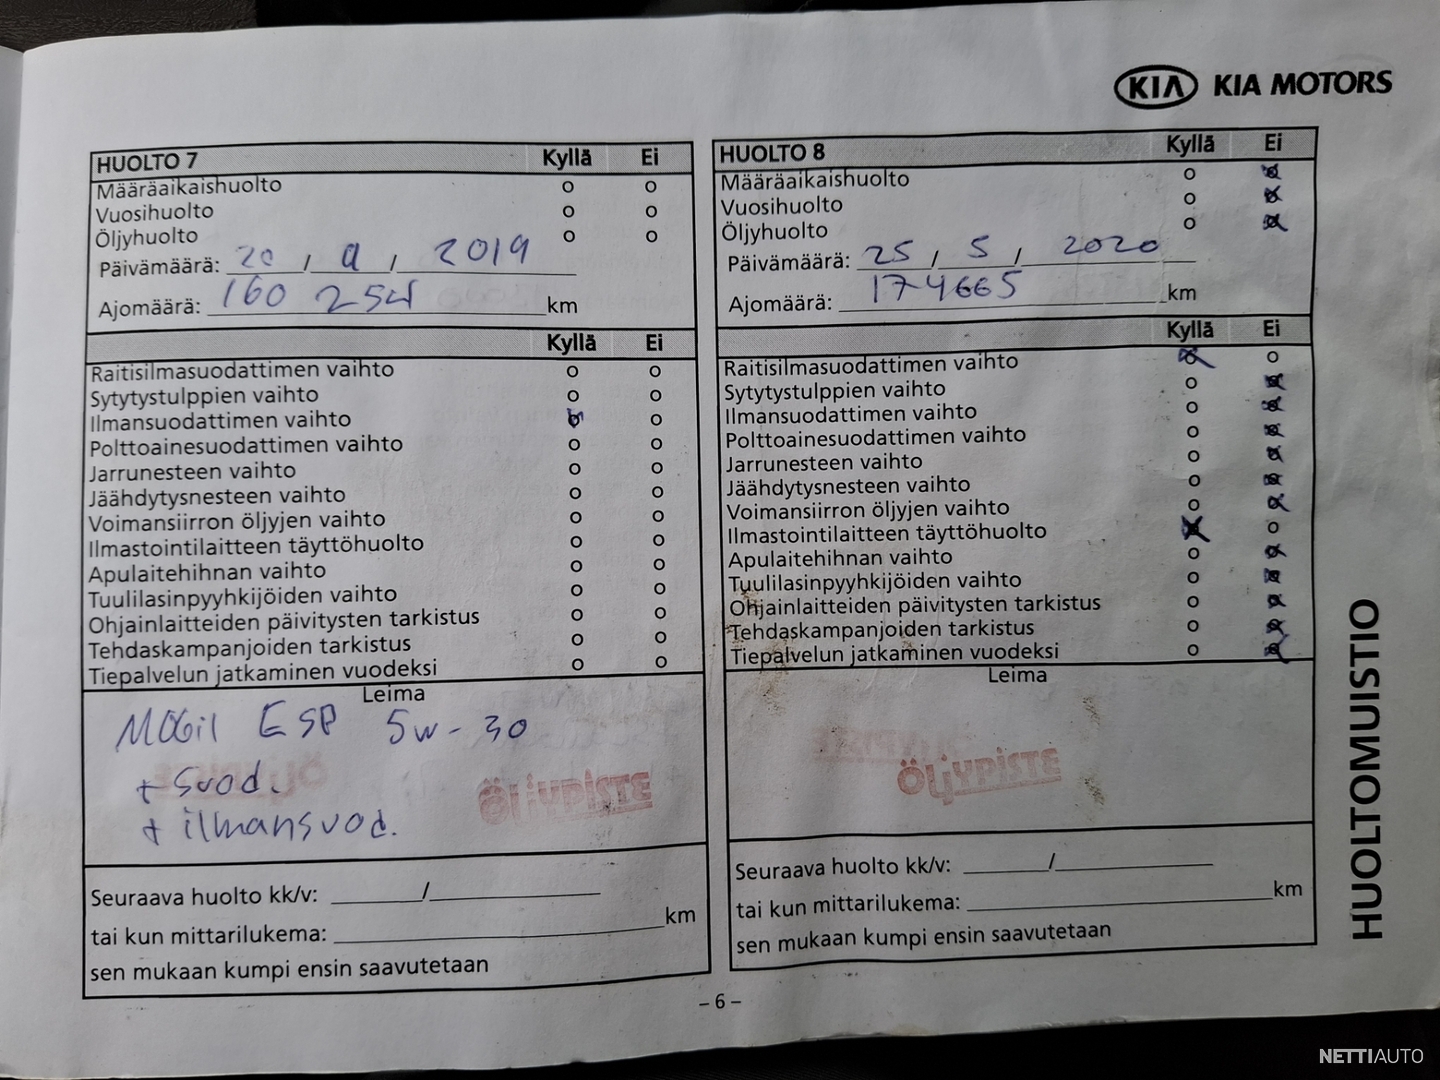 KIA KIA MOTORS
HUOLTO 7 Kyllä Ei
Määräaikaishuolto o o
Vuosihuolto o o
Öljyhuolto o o
Päivämäärä: 20 , 9 , 2019
Ajomäärä: 160 254 km
Kyllä Ei
Raitisilmasuodattimen vaihto o o
Sytytystulppien vaihto o o
Ilmansuodattimen vaihto o
Polttoainesuodattimen vaihto o o
Jarrunesteen vaihto o o
Jäähdytysnesteen vaihto o o
Voimansiirron öljyjen vaihto o o
Ilmastointilaitteen täyttöhuolto o o
Apulaitehihnan vaihto o o
Tuulilasinpyyhkijöiden vaihto o o
Ohjainlaitteiden päivitysten tarkistus o o
Tehdaskampanjoiden tarkistus o o
Tiepalvelun jatkaminen vuodeksi o o
Leima
Mobil ESP 5w-30
+ suod.
+ ilmansuod.
ÖLJYPISTE
Seuraava huolto kk/v: ______/______
tai kun mittarilukema: ______ km
sen mukaan kumpi ensin saavutetaan
HUOLTO 8 Kyllä Ei
Määräaikaishuolto o
Vuosihuolto o
Öljyhuolto o
Päivämäärä: 25 , 5 , 2020
Ajomäärä: 174665 km
Kyllä Ei
Raitisilmasuodattimen vaihto o
Sytytystulppien vaihto o
Ilmansuodattimen vaihto o
Polttoainesuodattimen vaihto o
Jarrunesteen vaihto o
Jäähdytysnesteen vaihto o
Voimansiirron öljyjen vaihto o
Ilmastointilaitteen täyttöhuolto o
Apulaitehihnan vaihto o
Tuulilasinpyyhkijöiden vaihto o
Ohjainlaitteiden päivitysten tarkistus o
Tehdaskampanjoiden tarkistus o
Tiepalvelun jatkaminen vuodeksi o
Leima
ÖLJYPISTE
Seuraava huolto kk/v: ______/______
tai kun mittarilukema: ______ km
sen mukaan kumpi ensin saavutetaan
HUOLTOMUISTIO
– 6 –
NETTIAUTO